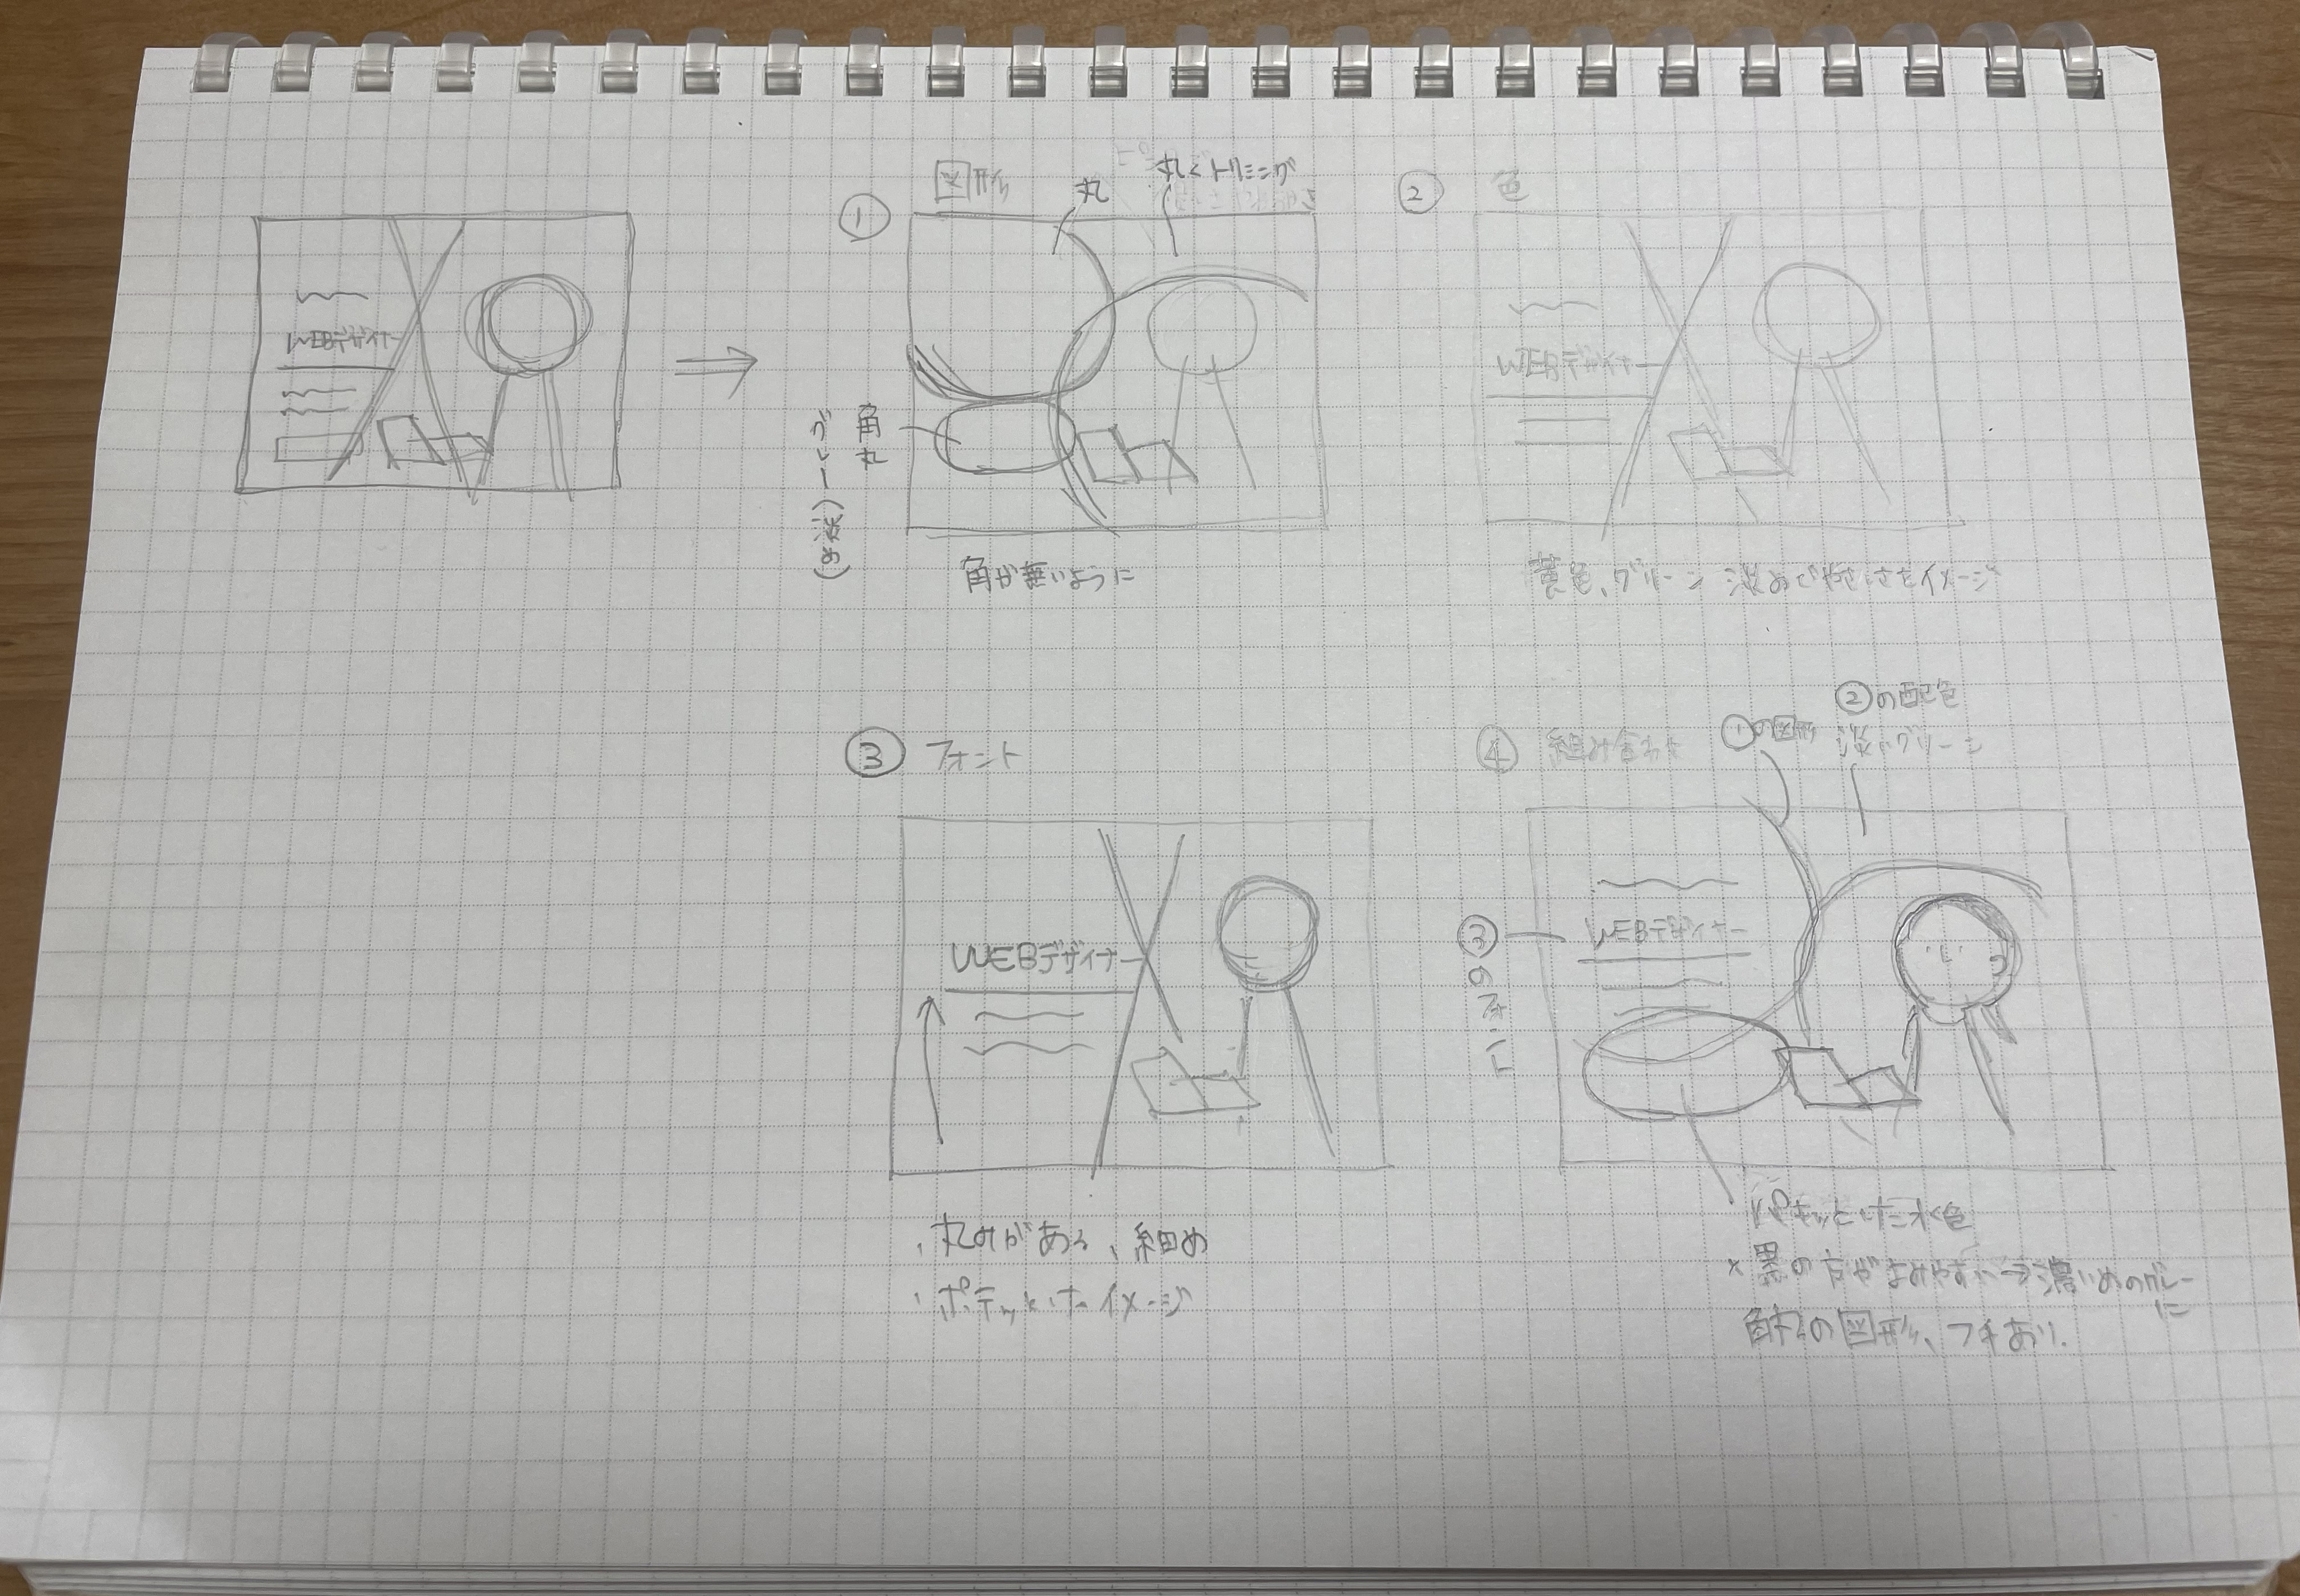 WEBデザイナー
① 図形
丸
丸くトリミング
角丸
グレー(淡め)
角が無いように
② 色
WEBデザイナー
黄色、グリーン 淡めで優しさをイメージ
③ フォント
WEBデザイナー
・丸みがある、細め
・ポテッとしたイメージ
④ 組み合わせ
①の図形
②の配色
淡いグリーン
③のフォント
WEBデザイナー
パキッとした水色
×黒の方がよみやすい→濃いめのグレーに
角丸の図形、フチあり.